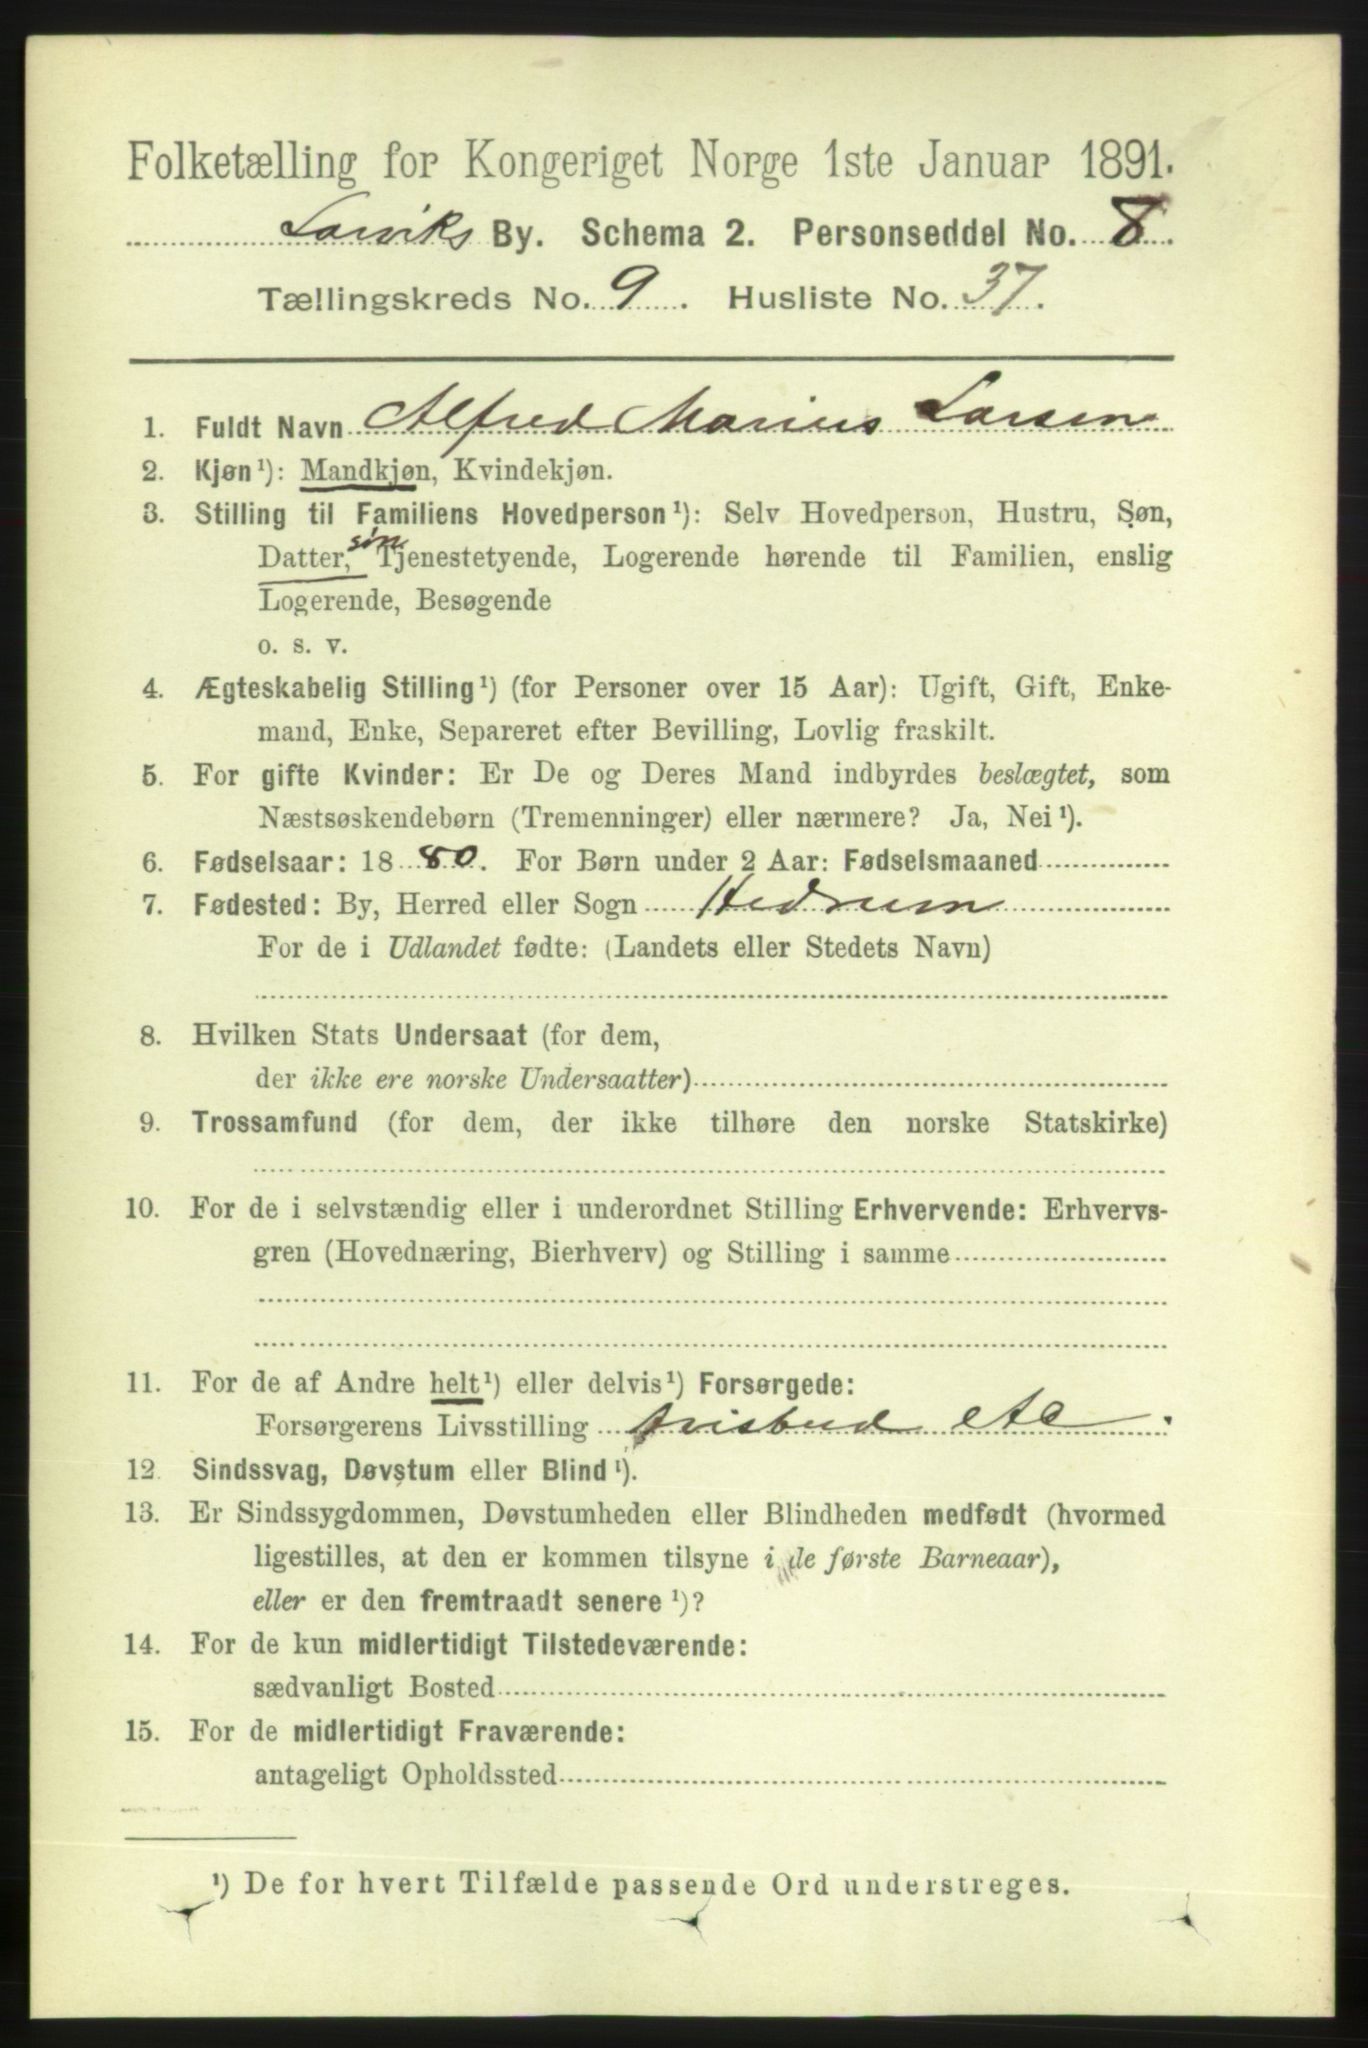 Folketælling for Kongeriget Norge 1ste Januar 1891.
Larviks By. Schema 2. Personseddel No. 8.
Tællingskreds No. 9. Husliste No. 37.
1. Fuldt Navn Alfred Marius Larsen
2. Kjøn¹): Mandkjøn, Kvindekjøn.
3. Stilling til Familiens Hovedperson¹): Selv Hovedperson, Hustru, Søn,
Datter, søn Tjenestetyende, Logerende hørende til Familien, enslig
Logerende, Besøgende
o. s. v.
4. Ægteskabelig Stilling¹) (for Personer over 15 Aar): Ugift, Gift, Enke-
mand, Enke, Separeret efter Bevilling, Lovlig fraskilt.
5. For gifte Kvinder: Er De og Deres Mand indbyrdes beslægtet, som
Næstsøskendebørn (Tremenninger) eller nærmere? Ja, Nei¹).
6. Fødselsaar: 1880. For Børn under 2 Aar: Fødselsmaaned
7. Fødested: By, Herred eller Sogn Hedrum
For de i Udlandet fødte: (Landets eller Stedets Navn)
8. Hvilken Stats Undersaat (for dem,
der ikke ere norske Undersaatter)
9. Trossamfund (for dem, der ikke tilhøre den norske Statskirke)
10. For de i selvstændig eller i underordnet Stilling Erhvervende: Erhvervs-
gren (Hovednæring, Bierhverv) og Stilling i samme
11. For de af Andre helt¹) eller delvis¹) Forsørgede:
Forsørgerens Livsstilling Avisbud etc.
12. Sindssvag, Døvstum eller Blind¹).
13. Er Sindssygdommen, Døvstumheden eller Blindheden medfødt (hvormed
ligestilles, at den er kommen tilsyne i de første Barneaar),
eller er den fremtraadt senere¹)?
14. For de kun midlertidigt Tilstedeværende:
sædvanligt Bosted
15. For de midlertidigt Fraværende:
antageligt Opholdssted
¹) De for hvert Tilfælde passende Ord understreges.